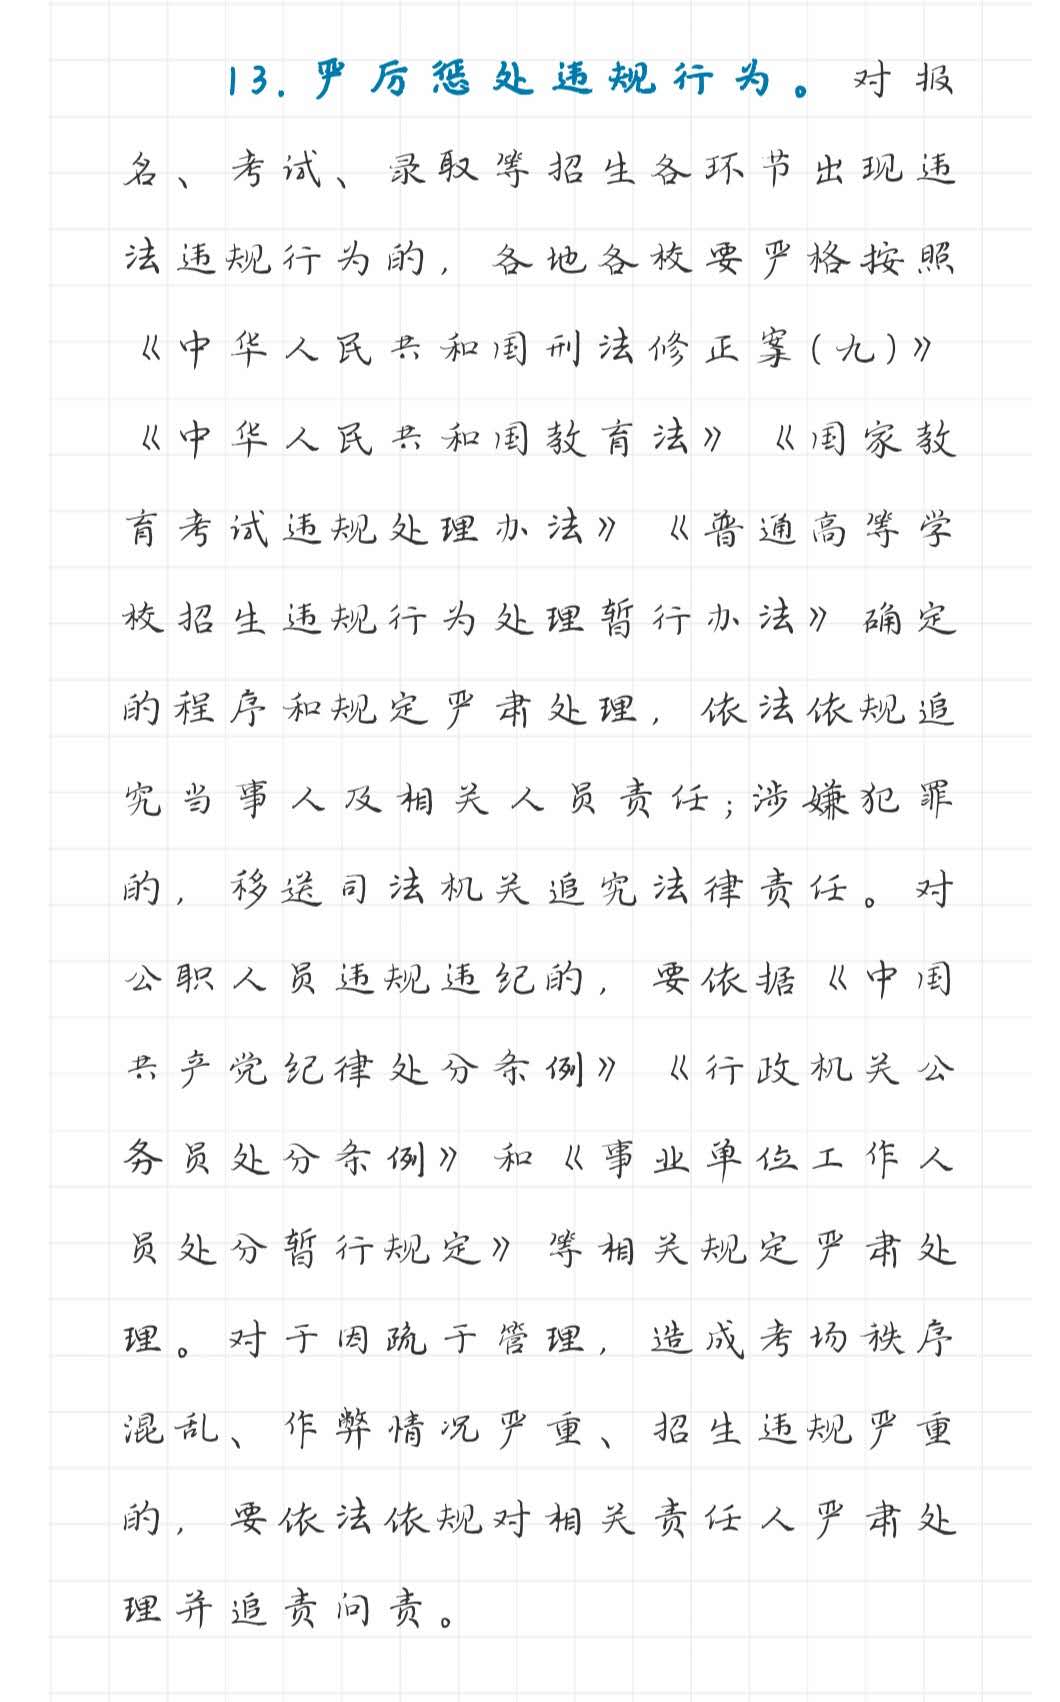 13.严厉惩处违规行为。对报
名、考试、录取等招生各环节出现违
法违规行为的,各地各校要严格按照
《中华人民共和国刑法修正案(九)》
《中华人民共和国教育法》《国家教
育考试违规处理办法》《普通高等学
校招生违规行为处理暂行办法》确定
的程序和规定严肃处理,依法依规追
究当事人及相关人员责任;涉嫌犯罪
的,移送司法机关追究法律责任。对
公职人员违规违纪的,要依据《中国
共产党纪律处分条例》《行政机关公
务员处分条例》和《事业单位工作人
员处分暂行规定》等相关规定严肃处
理。对于因疏于管理,造成考场秩序
混乱、作弊情况严重、招生违规严重
的,要依法依规对相关责任人严肃处
理并追责问责。